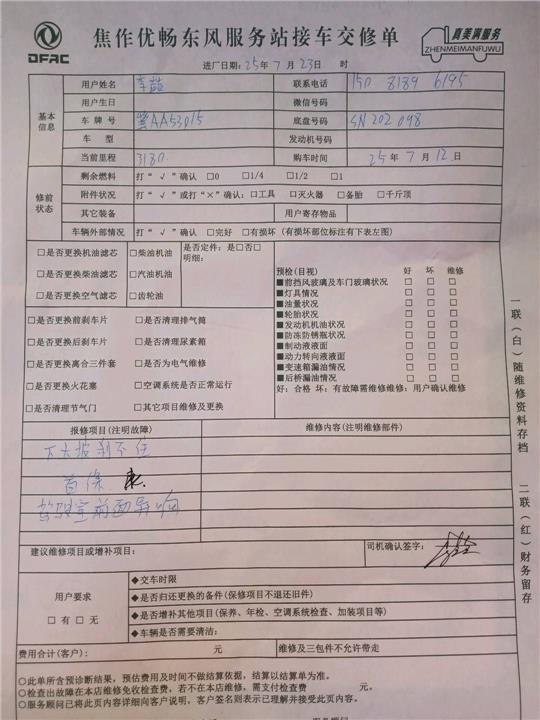 DFAC
焦作优畅东风服务站接车交修单
真美满服务
ZHENMEIMANFUWU
进厂日期：25年7月23日 时
基本信息
用户姓名
联系电话 150 8189 6195
用户生日
微信号码
车牌号 冀AA53015
底盘号码 SN202098
车型
发动机号码
当前里程 3180
购车时间 25年7月12日
修前状态
剩余燃料 打“√”确认 □0 □1/4 □1/2 □1
附件状况 打“√”或打“×”确认：□工具 □灭火器 □备胎 □千斤顶
其它装备
用户寄存物品
车辆外部情况 打“√”确认 □完好 □有损坏（有损坏部位标注有下表左图）
□是否更换机油滤芯 □柴油机油 是否定件：是□否□
明细：
□是否更换柴油滤芯 □汽油机油
□是否更换空气滤芯 □齿轮油
预检(目视) 好 坏 维修
■前挡风玻璃及车门玻璃状况 □ □ □
■灯具情况 □ □ □
■油量状况 □ □ □
■轮胎状况 □ □ □
■发动机机油状况 □ □ □
■防冻防锈瓶状况 □ □ □
■制动液液面 □ □ □
■动力转向液液面 □ □ □
■变速箱漏油情况 □ □ □
■后桥漏油情况 □ □ □
好：合格 坏：有故障需维修维修：用户确认维修
□是否更换前刹车片 □是否清理排气筒
□是否更换后刹车片 □是否清理尿素箱
□是否更换离合三件套 □是否为电气维修
□是否更换火花塞 □空调系统是否正常运行
□是否清理节气门 □其它项目维修及更换
报修项目(注明故障)
维修内容(注明维修部件)
下大坡刹不住
首保
驾驶室前面异响
建议维修项目或增补项目：
司机确认签字：
用户要求
□有□无
◆交车时限
◆是否归还更换的备件(保修项目不退还旧件)
◆是否增补其他项目(保养、年检、空调系统检查、加装项目等)
◆车辆是否需要清洁：
费用合计(客户)： 元
维修及三包件不允许带走
○此单所含预诊断结果，预估费用及时间不做结算依据，结算以结算单为准。
○检查出故障在本店维修免收检查费，若不在本店维修，需支付检查费 元。
○服务顾问已将此页内容详细向客户说明，客户签名则表示已理解并接受此页内容。
服务顾问
一联(白)随维修资料存档
二联(红)财务留存